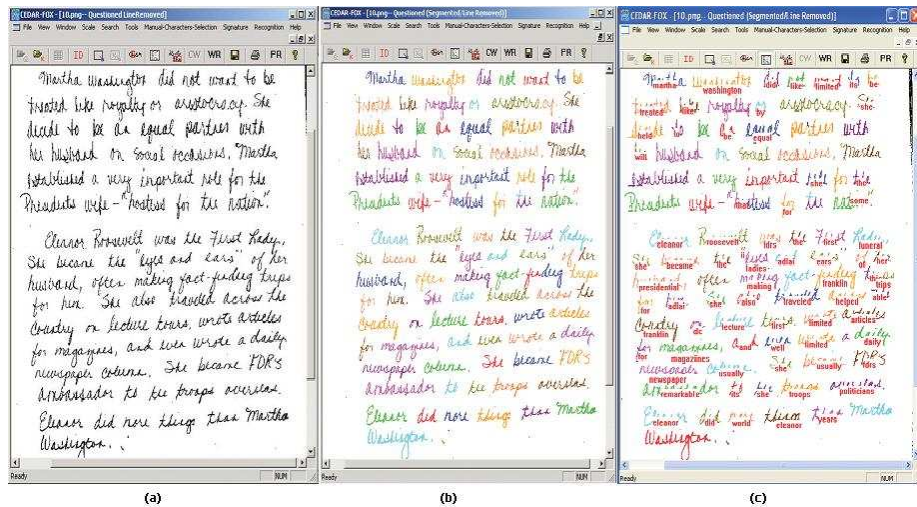 CEDAR-FOX - [10.png-- Questioned LineRemoved]
File View Window Scale Search Tools Manual-Characters-Selection Signature Recognition Help
ID CW WR PR
Martha Washington did not want to be
treated like royalty or aristocracy. She
decide to be an equal partner with
her husband on social occasions. Martha
established a very important role for the
Presidents wife - "hostess for the nation".
Eleanor Roosevelt was the First Lady.
She became the "eyes and ears" of her
husband, often making fact-finding trips
for him. She also traveled across the
country on lecture tours, wrote articles
for magazines, and even wrote a daily
newspaper column. She became FDR'S
ambassador to the troops overseas.
Eleanor did more things than Martha
Washington.
Ready NUM
(a)
CEDAR-FOX - [10.png-- Questioned (Segmented/Line Removed)]
File View Window Scale Search Tools Manual-Characters-Selection Signature Recognition Help
ID CW WR PR
Martha Washington did not want to be
treated like royalty or aristocracy. She
decide to be an equal partner with
her husband on social occasions. Martha
established a very important role for the
Presidents wife - "hostess for the nation".
Eleanor Roosevelt was the First Lady.
She became the "eyes and ears" of her
husband, often making fact-finding trips
for him. She also traveled across the
country on lecture tours, wrote articles
for magazines, and even wrote a daily
newspaper column. She became FDR'S
ambassador to the troops overseas.
Eleanor did more things than Martha
Washington.
Ready NUM
(b)
CEDAR-FOX - [10.png-- Questioned (Segmented/Line Removed)]
File View Window Scale Search Tools Manual-Characters-Selection Signature Recognition Help
ID CW WR PR
Martha Washington did not
washington did like limited its be
treated like royalty
treated like by she
to be equal partner with
held be equal
husband on social occasions. Martha
will
established a very important for the
she she
Presidents wife - "hostess for the
for some
Eleanor Roosevelt was the First
eleanor roosevelt fdrs the first funeral
She became the "eyes and ears" of her
she became the ladies adlai ears of her
often making fact-finding
presidential making franklin trips
for She also traveled
for adlai she also traveled helped able
Country on lecture articles
franklin dc lecture first limited articles
for magazines, even a daily
for magazines and well limited daily
newspaper She FDR'S
newspaper usually she usually fdrs
troops
remarkable its she troops politicians
Eleanor did Martha
eleanor did world eleanor years
Washington.
Ready NUM
(c)